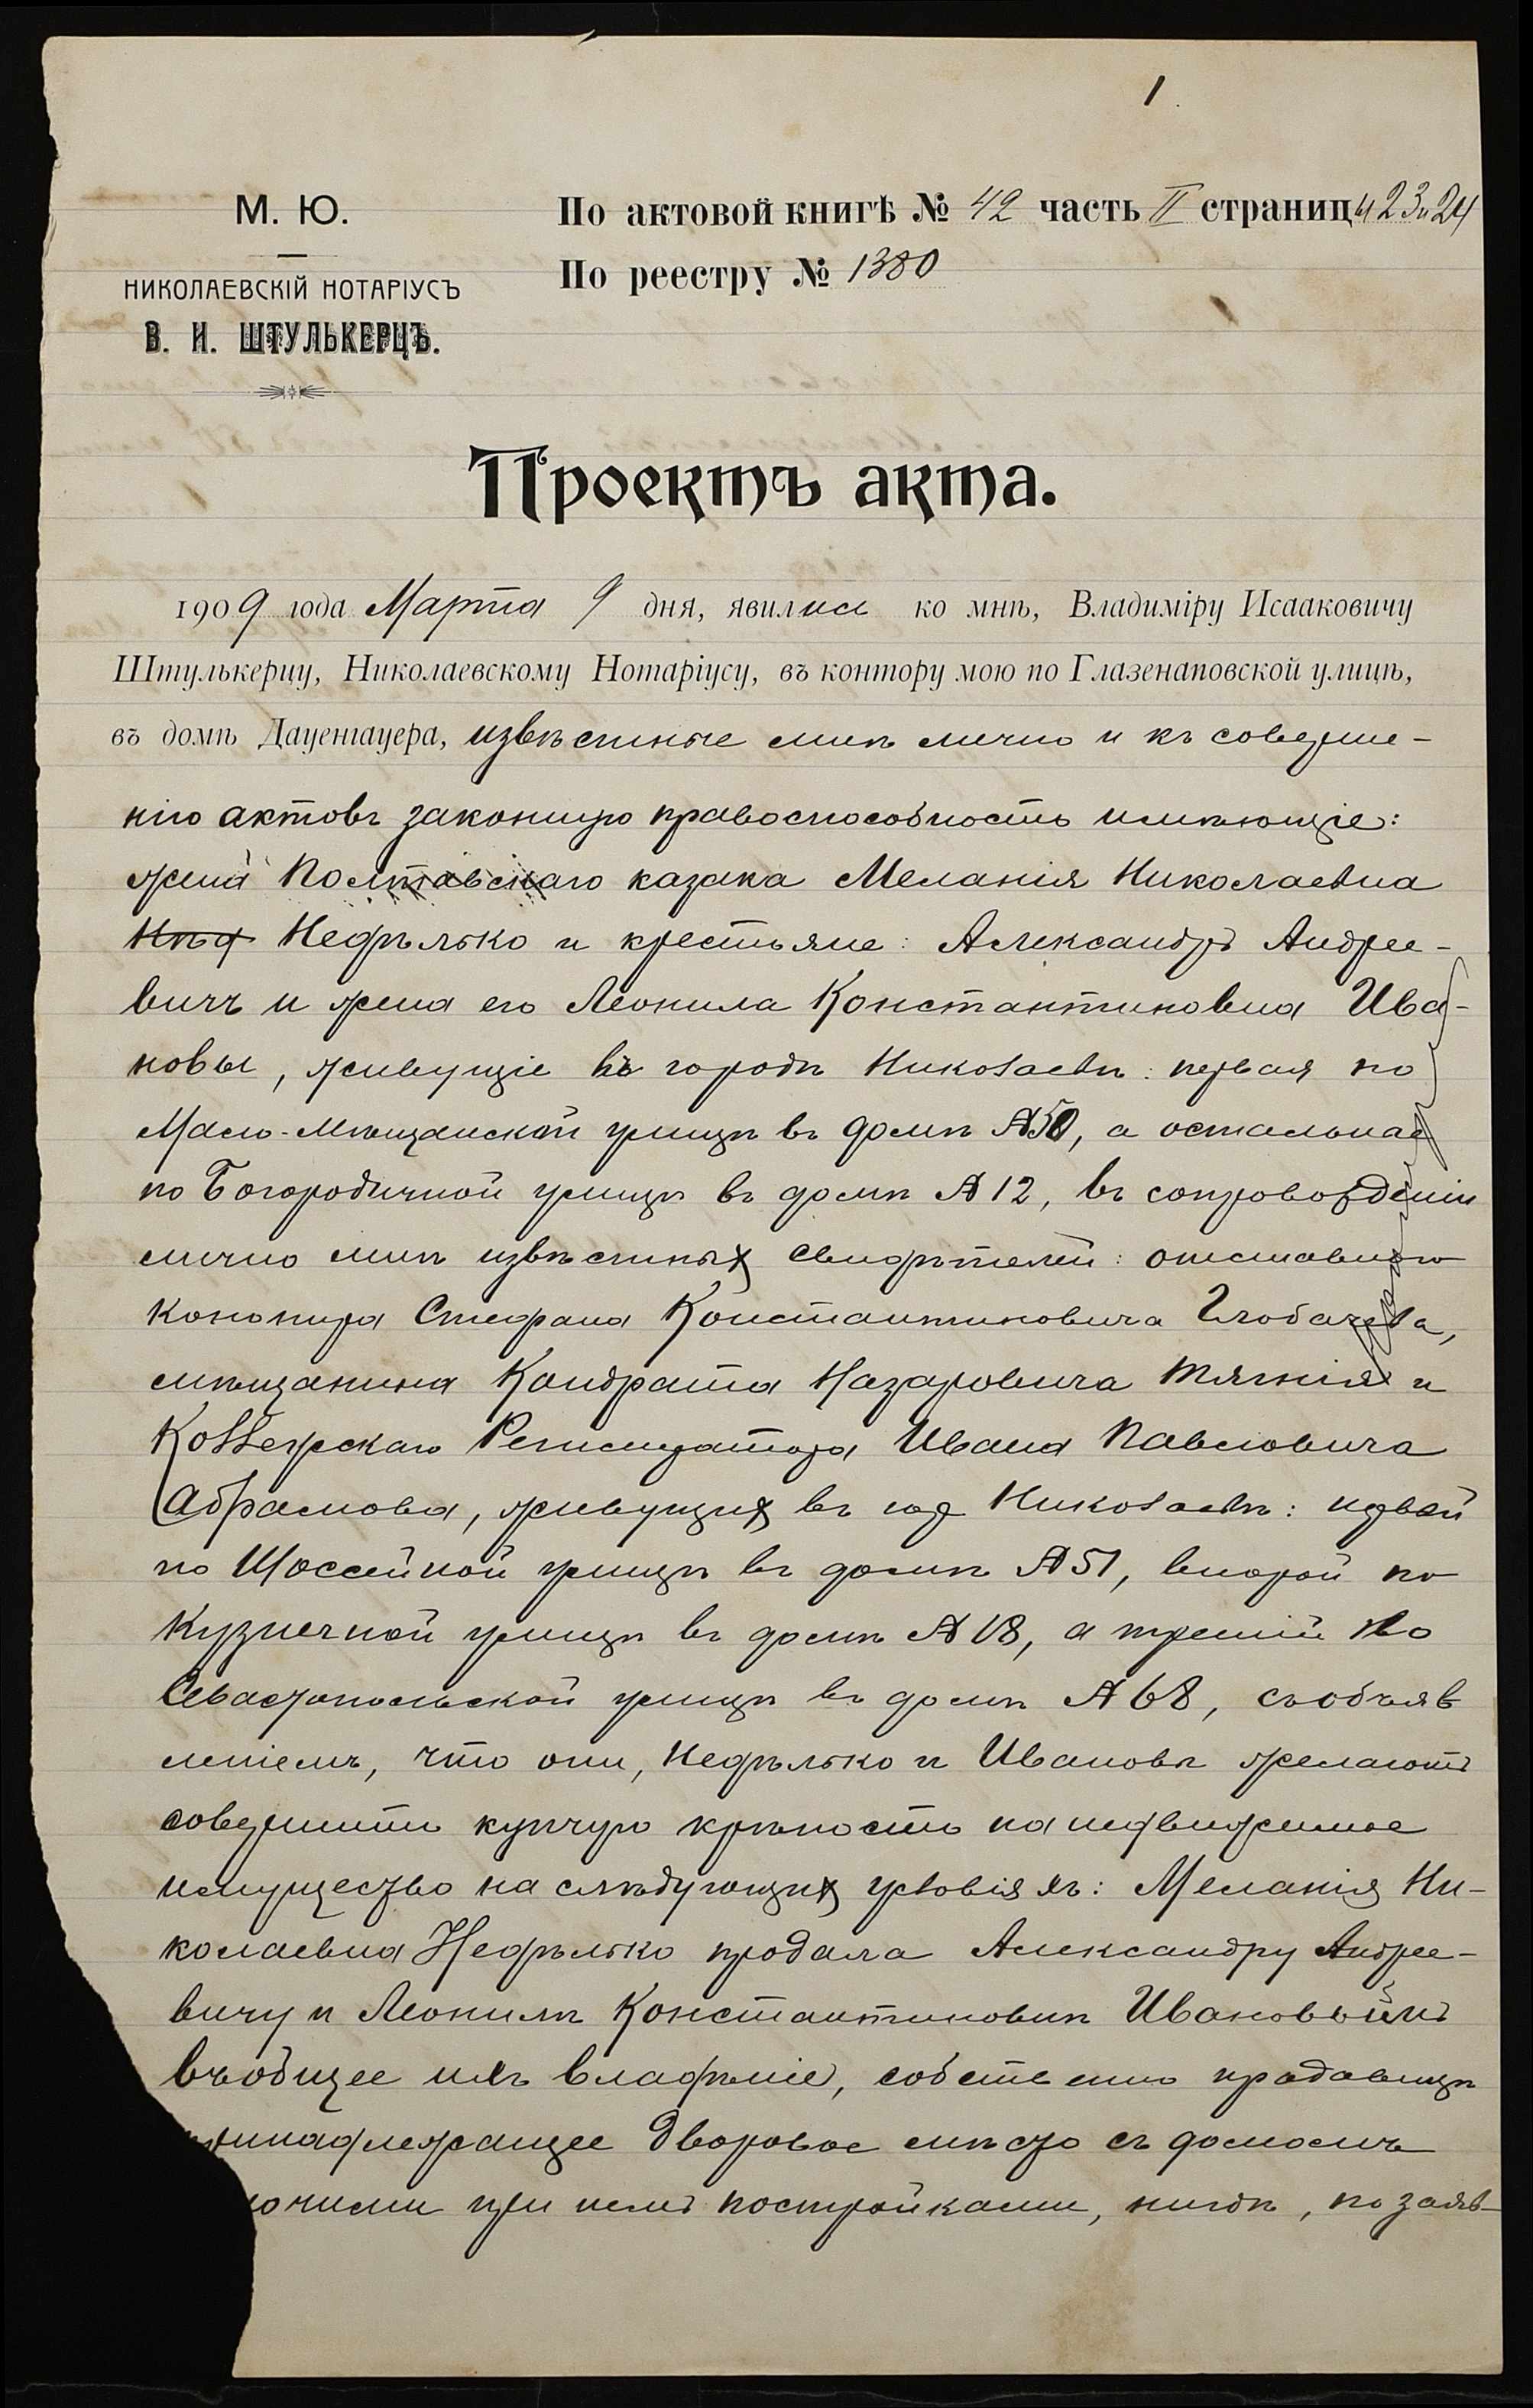 1
М. Ю.
НИКОЛАЕВСКІЙ НОТАРІУСЪ
В. И. ШТУЛЬКЕРЦЪ.
По актовой книгѣ № 42 часть II страницы 23 и 24
По реестру № 1380
Проектъ акта.
1909 года Марта 9 дня, явились ко мнѣ, Владиміру Исааковичу
Штулькерцу, Николаевскому Нотаріусу, въ контору мою по Глазенаповской улицѣ,
въ домѣ Дауенгауера, извѣстные мнѣ лично и къ соверше-
нію актовъ законную правоспособность имѣющіе:
жена Полтавскаго казака Меланія Николаевна
Нѣд Недѣлько и крестьяне: Александръ Андрее-
вичъ и жена его Леонила Константиновна Ива-
новы, живущіе въ городѣ Николаевѣ: первая по
Мало-Мѣщанской улицѣ въ домѣ №50, а остальные
по Богородичной улицѣ въ домѣ № 12, въ сопровожденіи
лично мнѣ извѣстныхъ свидѣтелей: отставного
канонира Стефана Константиновича Глобачева,
мѣщанина Кондрата Назаровича Тягнія и
Коллежскаго Регистратора Ивана Павловича
Абрамова, живущихъ въ гор Николаевѣ: первый
по Шоссейной улицѣ въ домѣ №51, второй по
Кузнечной улицѣ въ домѣ № 18, а третій по
Севастопольской улицѣ въ домѣ № 68, съ объяв
леніемъ, что они, Недѣлько и Ивановы желаютъ
совершить купчую крѣпость на недвижимое
имущество на слѣдующихъ условіяхъ: Меланія Ни-
колаевна Недѣлько продала Александру Андрее-
вичу и Леонилѣ Константиновнѣ Ивановымъ
въ общее ихъ владѣніе, собственно продавицѣ
принадлежащее дворовое мѣсто съ домомъ
рочими при немъ постройками, нигдѣ, по заяв-